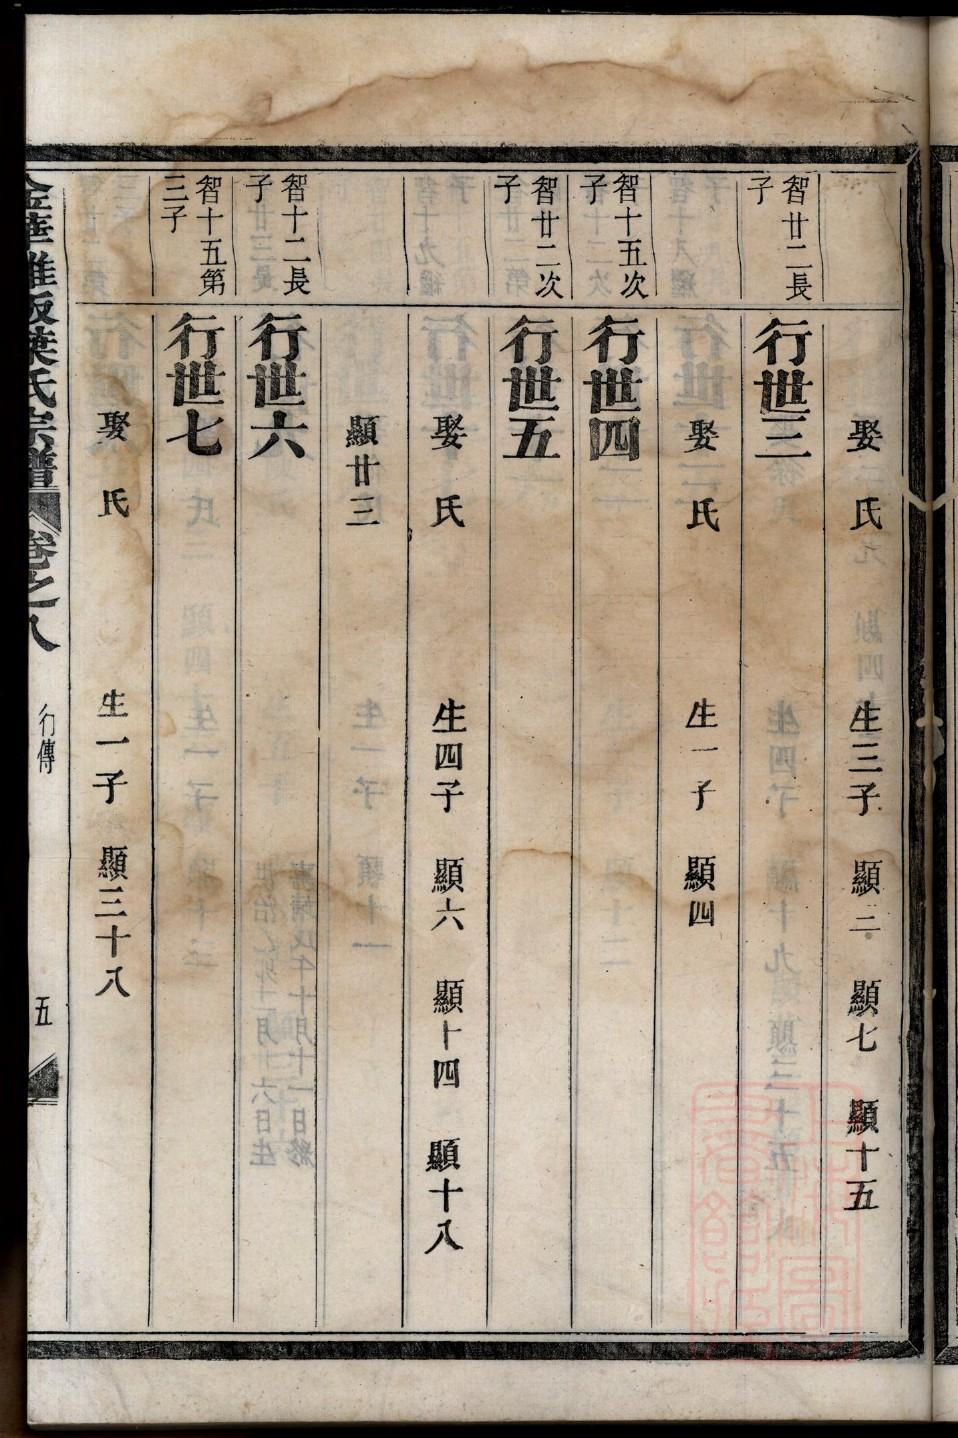 娶 氏 生三子 顯三 顯七 顯十五
智廿二長子
行世三
娶 氏 生一子 顯四
智十五次子
行世四
智廿二次子
行世五
娶 氏 生四子 顯六 顯十四 顯十八
顯廿三
智十二長子
行世六
智十五第三子
行世七
娶 氏 生一子 顯三十八
金華雅畈葉氏宗譜 卷之八 行傳 五